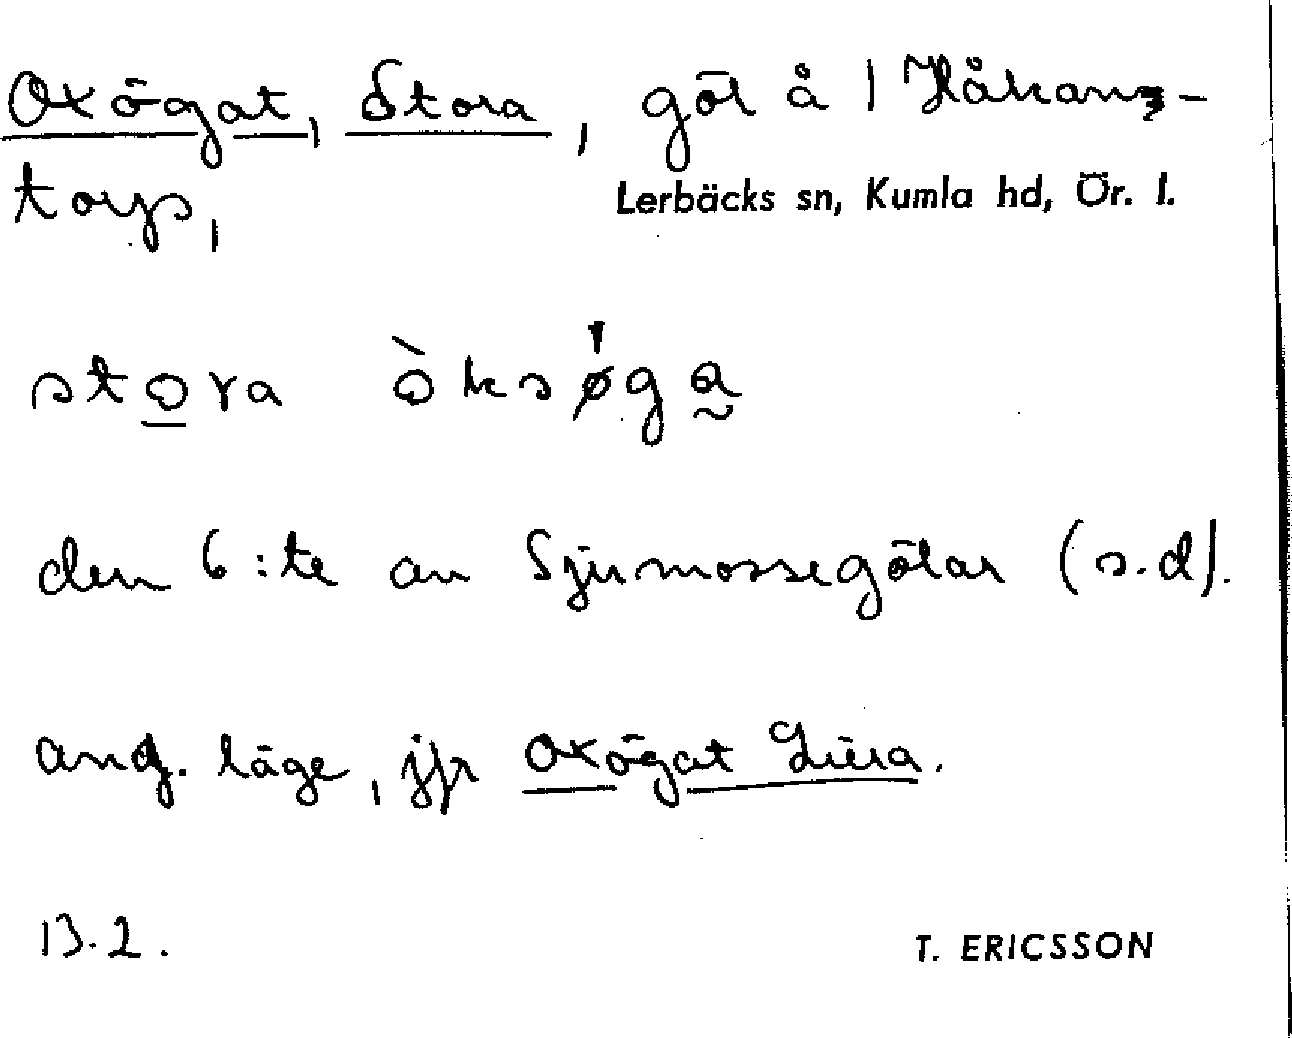 Oxögat, Stora, göl å 1 Håkans-
torp,
Lerbäcks sn, Kumla hd, Ör. l.
stora òksøga
den 6:te av Sjumossegölar (s.d).
ang. läge, jfr Oxögat Lilla.
B.2.
T. ERICSSON